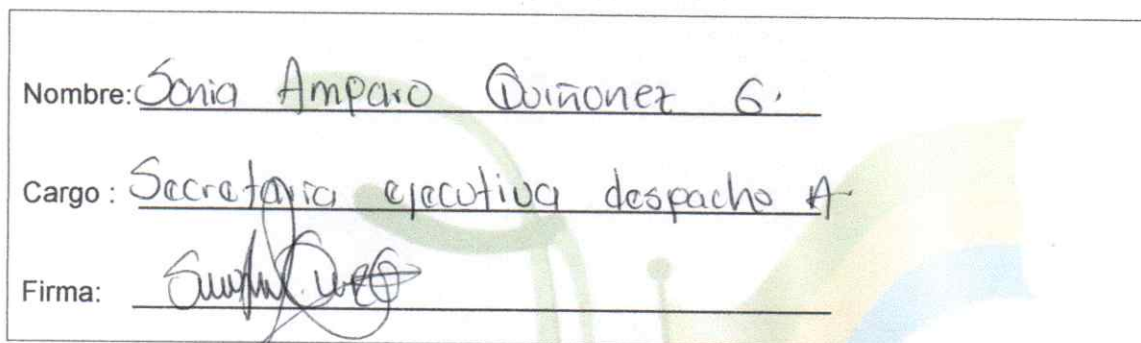 Nombre: Sonia Amparo Quiñonez G.
Cargo : Secretaria ejecutiva despacho A
Firma: